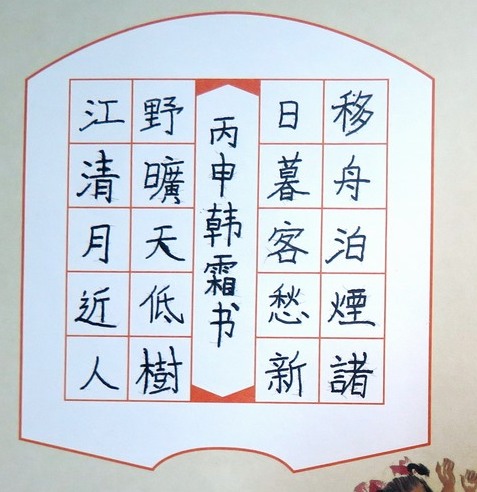 移舟泊煙諸
日暮客愁新
丙申韩霜书
野曠天低樹
江清月近人